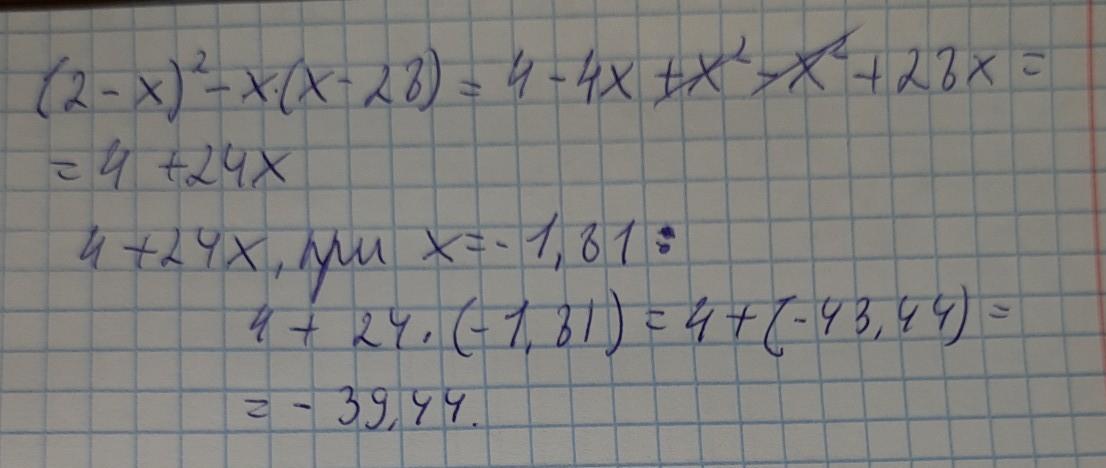 (2-x)²-x·(x-28)=4-4x+x²-x²+28x=
=4+24x
4+24x, при x=-1,81:
4+24·(-1,81)=4+(-43,44)=
=-39,44.